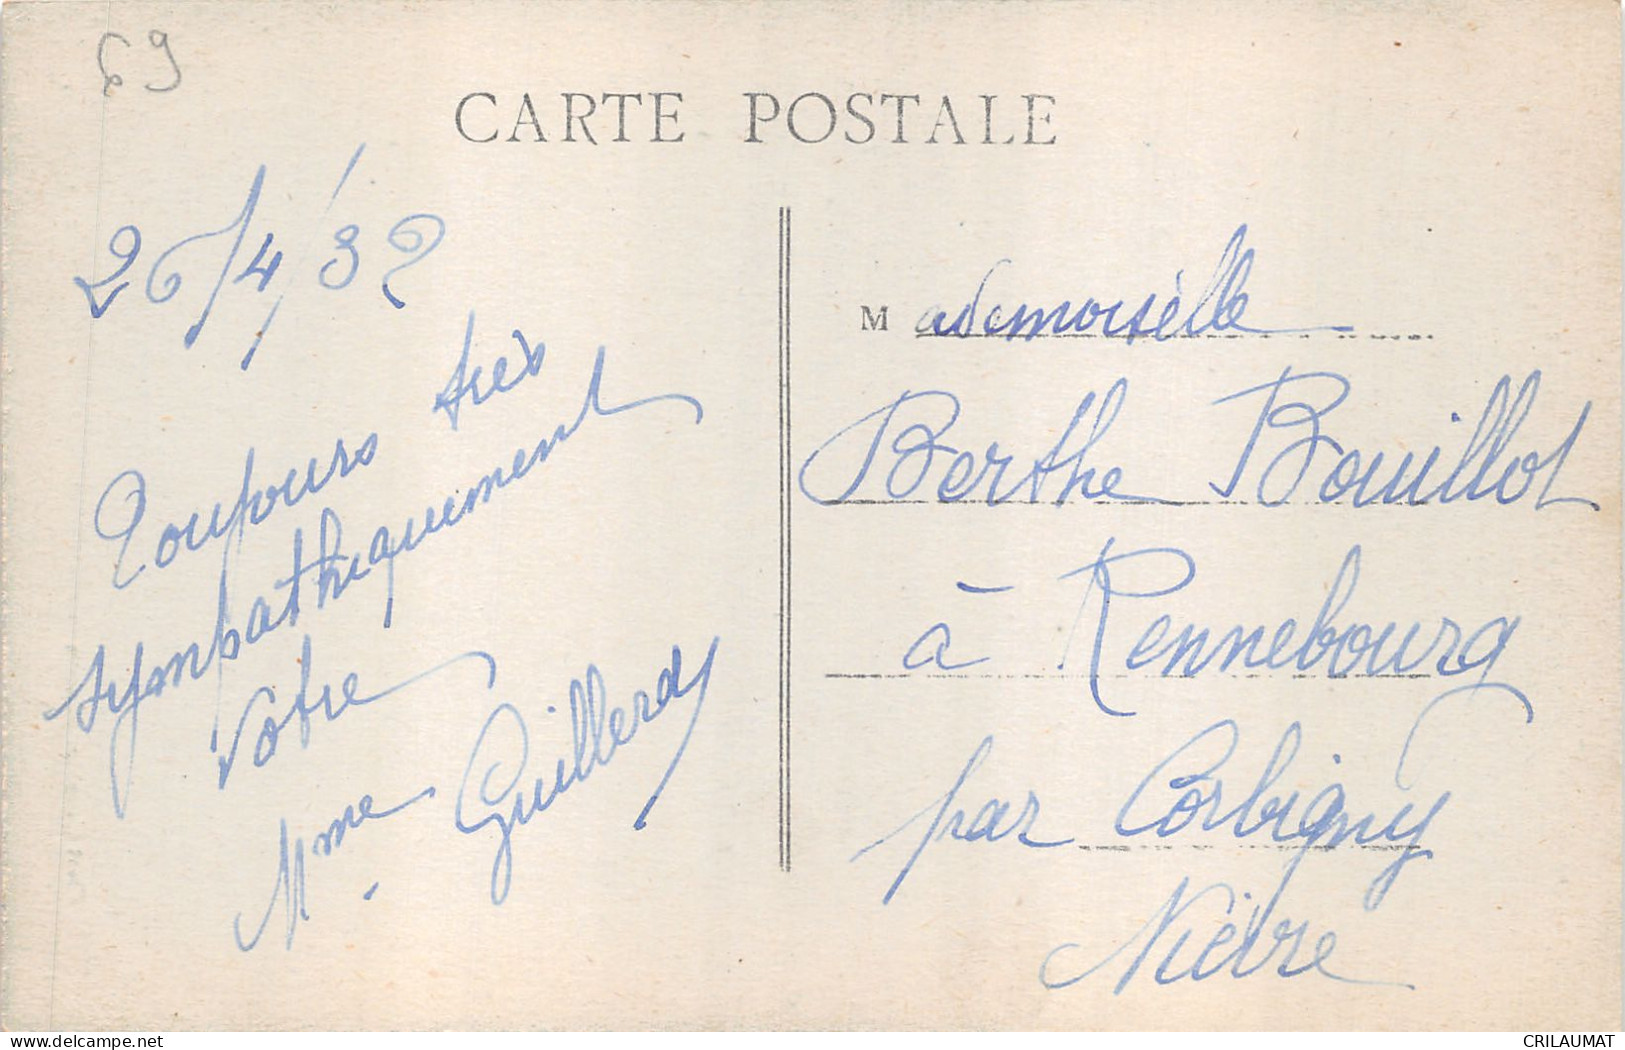 69
CARTE POSTALE
26/4/32
Toujours très
sympathiquement
Votre
Mme Guillerd
Mademoiselle
Berthe Bouillot
à Rennebourg
par Corbigny
Nièvre
delcampe.net
CRILAUMAT